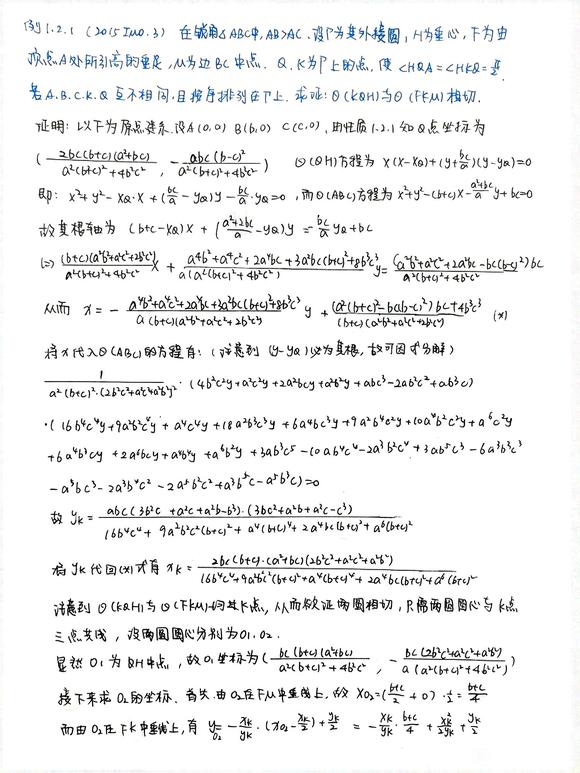 例1.2.1 (2015 IMO.3) 在锐角△ABC中, AB>AC. 设Γ为其外接圆, H为垂心, F为由
顶点A处所引高的垂足, M为边BC中点. Q, K为Γ上的点, 使∠HQA=∠HKQ=π/2.
若A.B.C.K.Q互不相同, 且按序排列在Γ上. 求证: ⊙(KQH)与⊙(FKM)相切.
证明: 以F为原点建系. 设A(0,a) B(b,0) C(c,0), 由性质1.2.1知Q点坐标为
(2bc(b+c)(a²+bc)/(a²(b+c)²+4b²c²), -abc(b-c)²/(a²(b+c)²+4b²c²)) ⊙(QH)方程为 x(x-xQ)+(y+bc/a)(y-yQ)=0
即: x²+y²-xQ·x+(bc/a-yQ)y-bc/a·yQ=0, 而⊙(ABC)方程为x²+y²-(b+c)x-(a²+bc)/a y+bc=0
故其根轴为 (b+c-xQ)x+((a²+2bc)/a-yQ)y=bc/a yQ+bc
从而 x=-
(*)
将x代入⊙(ABC)的方程有: (注意到 (y-yQ)必为其根, 故可因式分解)
1/(a²(b+c)²·(2b²c²+a²c²+a²b²)²)·(4b²c²y+a²c²y+2a²bcy+a²b²y+abc³-2ab²c²+ab³c)
·(16b⁴c⁴y+9a²b²c⁴y+a⁴c⁴y+18a²b³c³y+6a⁴bc³y+9a²b⁴c²y+10a⁴b²c²y+a⁶c²y
+6a⁴b³cy+2a⁶bcy+a⁴b⁴y+a⁶b²y+3ab³c⁵-10ab⁴c⁴-2a³b²c⁴+3ab⁵c³-6a³b³c³
-a⁵bc³-2a³b⁴c²-2a⁵b²c²+a³b⁵c-a⁵b³c)=0
故 yK=abc(3b²c+a²c+a²b-b³)·(3bc²+a²b+a²c-c³)/(16b⁴c⁴+9a²b²c²(b+c)²+a⁴(b+c)⁴+2a⁴bc(b+c)²+a⁶(b+c)²)
将yK代回(*)式有 xK=2bc(b+c)·(a²+bc)(2b²c²+a²c²+a²b²)/(16b⁴c⁴+9a²b²c²(b+c)²+a⁴(b+c)⁴+2a⁴bc(b+c)²+a⁶(b+c)²)
注意到⊙(KQH)与⊙(FKM)同过K点, 从而欲证两圆相切, 只需两圆圆心与K点
三点共线, 设两圆圆心分别为O1, O2.
显然O1为QH中点, 故O1坐标为(bc(b+c)(a²+bc)/(a²(b+c)²+4b²c²), -bc(2b²c²+a²c²+a²b²)/(a(a²(b+c)²+4b²c²)))
接下来求O2的坐标. 首先, 由O2在FM中垂线上, 故 xO2=((b+c)/2+0)·1/2=(b+c)/4
而由O2在FK中垂线上, 有 yO2=-xK/yK·(xO2-xK/2)+yK/2=-xK/yK·(b+c)/4+xK²/2yK+yK/2